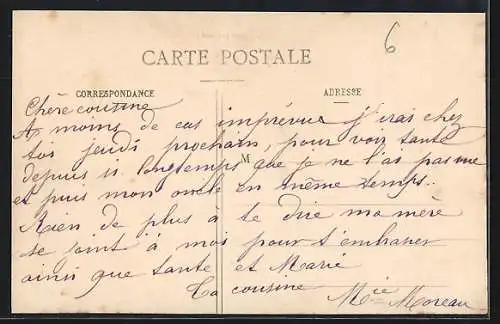 6
CARTE POSTALE
CORRESPONDANCE
ADRESSE
M
Chère cousine
A moins de cas imprévue j'irai chez
toi jeudi prochain, pour voir tante
depuis si longtemps que je ne l'as pas vue
et puis mon oncle en même temps..
Rien de plus à te dire ma mère
se joint à moi pour t'embrasser
ainsi que tante et Marie
Ta cousine
Mie Moreau